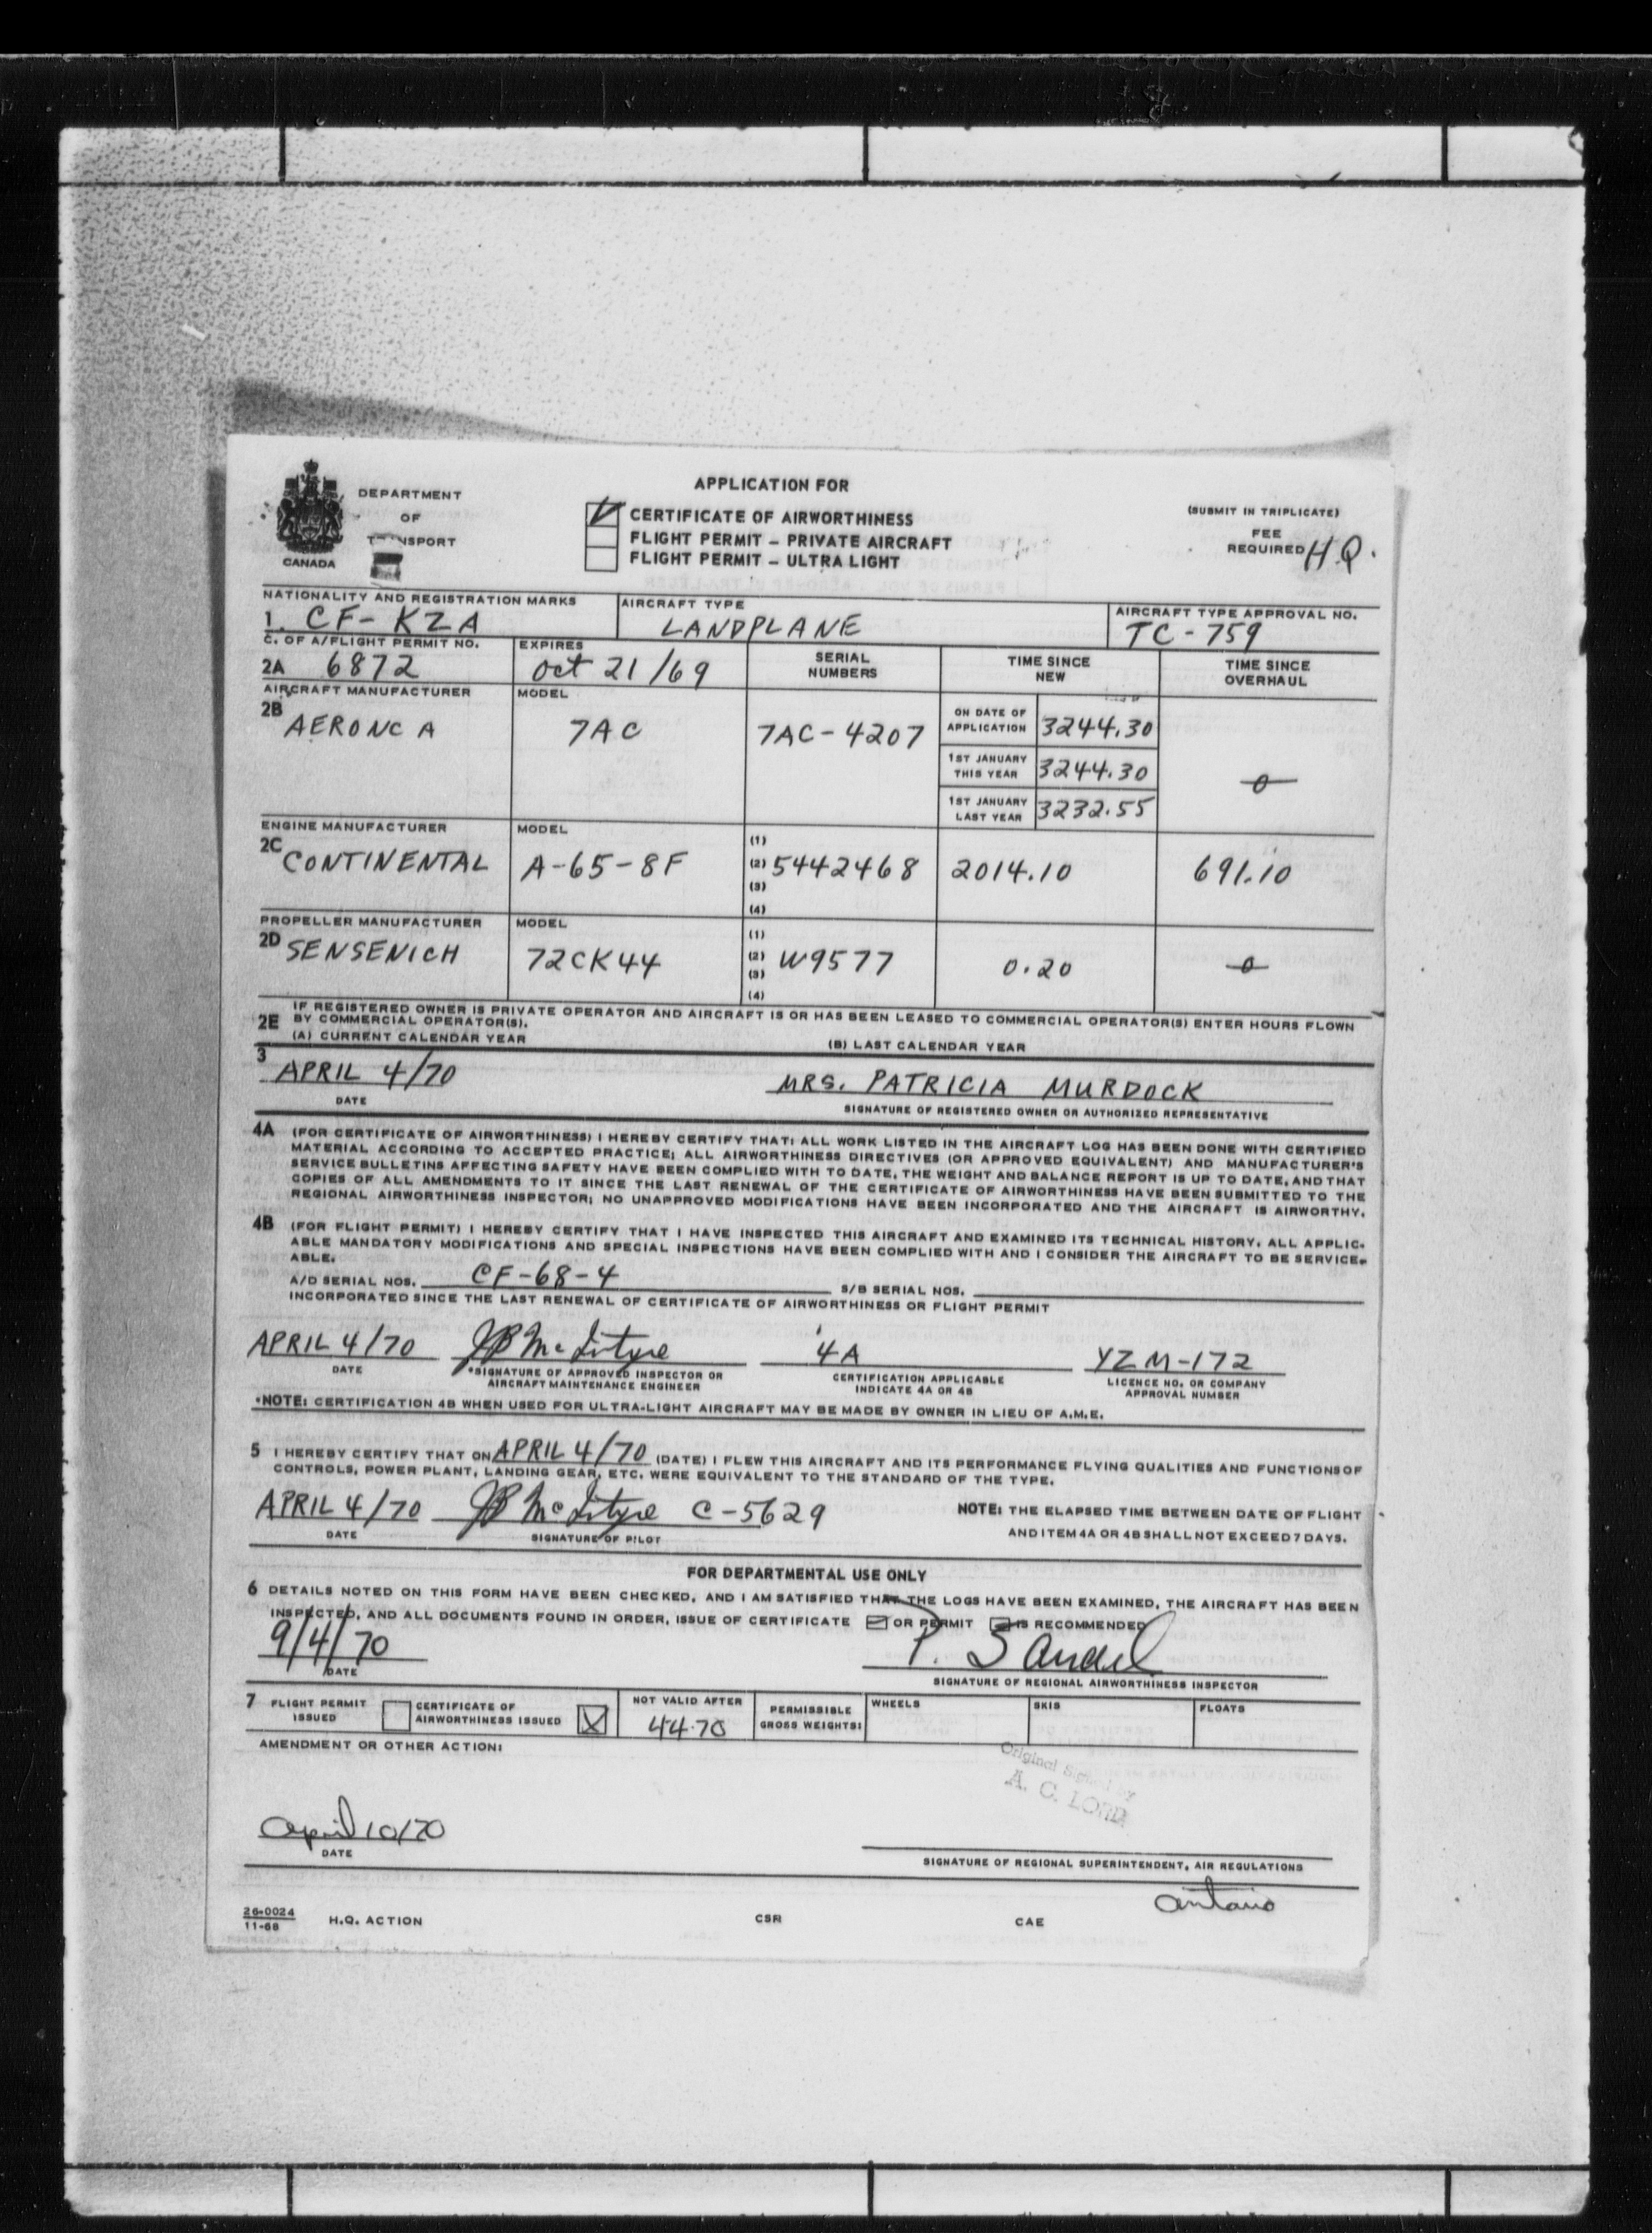 DEPARTMENT
OF
CANADA
APPLICATION FOR
CERTIFICATE OF AIRWORTHINESS
FLIGHT PERMIT – PRIVATE AIRCRAFT
FLIGHT PERMIT – ULTRA LIGHT
(SUBMIT IN TRIPLICATE)
FEE
REQUIRED H.Q.
NATIONALITY AND REGISTRATION MARKS AIRCRAFT TYPE AIRCRAFT TYPE APPROVAL NO.
1. CF-KZA LANDPLANE TC-759
C. OF A/FLIGHT PERMIT NO. EXPIRES SERIAL NUMBERS TIME SINCE NEW TIME SINCE OVERHAUL
2A 6872 Oct 21/69
AIRCRAFT MANUFACTURER MODEL
2B AERONCA 7AC 7AC-4207
ON DATE OF APPLICATION 3244.30
1ST JANUARY THIS YEAR 3244.30
1ST JANUARY LAST YEAR 3232.55
0
ENGINE MANUFACTURER MODEL
2C CONTINENTAL A-65-8F (1) (2) (3) (4) 5442468 2014.10 691.10
PROPELLER MANUFACTURER MODEL
2D SENSENICH 72CK44 (1) (2) (3) (4) W9577 0.20 0
2E IF REGISTERED OWNER IS PRIVATE OPERATOR AND AIRCRAFT IS OR HAS BEEN LEASED TO COMMERCIAL OPERATOR(S) ENTER HOURS FLOWN
BY COMMERCIAL OPERATOR(S).
(A) CURRENT CALENDAR YEAR (B) LAST CALENDAR YEAR
3 APRIL 4/70 MRS. PATRICIA MURDOCK
DATE SIGNATURE OF REGISTERED OWNER OR AUTHORIZED REPRESENTATIVE
4A (FOR CERTIFICATE OF AIRWORTHINESS) I HEREBY CERTIFY THAT: ALL WORK LISTED IN THE AIRCRAFT LOG HAS BEEN DONE WITH CERTIFIED
MATERIAL ACCORDING TO ACCEPTED PRACTICE; ALL AIRWORTHINESS DIRECTIVES (OR APPROVED EQUIVALENT) AND MANUFACTURER'S
SERVICE BULLETINS AFFECTING SAFETY HAVE BEEN COMPLIED WITH TO DATE, THE WEIGHT AND BALANCE REPORT IS UP TO DATE, AND THAT
COPIES OF ALL AMENDMENTS TO IT SINCE THE LAST RENEWAL OF THE CERTIFICATE OF AIRWORTHINESS HAVE BEEN SUBMITTED TO THE
REGIONAL AIRWORTHINESS INSPECTOR; NO UNAPPROVED MODIFICATIONS HAVE BEEN INCORPORATED AND THE AIRCRAFT IS AIRWORTHY.
4B (FOR FLIGHT PERMIT) I HEREBY CERTIFY THAT I HAVE INSPECTED THIS AIRCRAFT AND EXAMINED ITS TECHNICAL HISTORY. ALL APPLIC-
ABLE MANDATORY MODIFICATIONS AND SPECIAL INSPECTIONS HAVE BEEN COMPLIED WITH AND I CONSIDER THE AIRCRAFT TO BE SERVICE-
ABLE.
A/D SERIAL NOS. CF-68-4 S/B SERIAL NOS.
INCORPORATED SINCE THE LAST RENEWAL OF CERTIFICATE OF AIRWORTHINESS OR FLIGHT PERMIT
APRIL 4/70 JB McIntyre 4A YZM-172
DATE *SIGNATURE OF APPROVED INSPECTOR OR AIRCRAFT MAINTENANCE ENGINEER CERTIFICATION APPLICABLE INDICATE 4A OR 4B LICENCE NO. OR COMPANY APPROVAL NUMBER
*NOTE: CERTIFICATION 4B WHEN USED FOR ULTRA-LIGHT AIRCRAFT MAY BE MADE BY OWNER IN LIEU OF A.M.E.
5 I HEREBY CERTIFY THAT ON APRIL 4/70 (DATE) I FLEW THIS AIRCRAFT AND ITS PERFORMANCE FLYING QUALITIES AND FUNCTIONS OF
CONTROLS, POWER PLANT, LANDING GEAR, ETC. WERE EQUIVALENT TO THE STANDARD OF THE TYPE.
APRIL 4/70 JB McIntyre C-5629
DATE SIGNATURE OF PILOT
NOTE: THE ELAPSED TIME BETWEEN DATE OF FLIGHT
AND ITEM 4A OR 4B SHALL NOT EXCEED 7 DAYS.
FOR DEPARTMENTAL USE ONLY
6 DETAILS NOTED ON THIS FORM HAVE BEEN CHECKED, AND I AM SATISFIED THAT THE LOGS HAVE BEEN EXAMINED, THE AIRCRAFT HAS BEEN
INSPECTED, AND ALL DOCUMENTS FOUND IN ORDER, ISSUE OF CERTIFICATE OR PERMIT IS RECOMMENDED
9/4/70 P.
DATE SIGNATURE OF REGIONAL AIRWORTHINESS INSPECTOR
7 FLIGHT PERMIT ISSUED CERTIFICATE OF AIRWORTHINESS ISSUED X NOT VALID AFTER 4470 PERMISSIBLE GROSS WEIGHTS: WHEELS SKIS FLOATS
AMENDMENT OR OTHER ACTION:
Original Signed by
A. C. LORD
April 10/70
DATE
SIGNATURE OF REGIONAL SUPERINTENDENT, AIR REGULATIONS
Ontario
26-0024
11-68
H.Q. ACTION CSR CAE